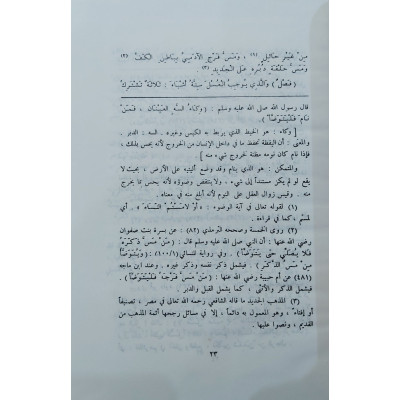 مِنْ غَيْرِ حَائِلٍ (١) ، وَمَسُّ فَرْجِ الآدَمِيِّ بِبَاطِنِ الكَفِّ (٢)
وَمَسُّ حَلْقَةِ دُبُرِهِ عَلَى الجَدِيدِ (٣) .
( فَصْلٌ ) وَالَّذِي يُوجِبُ الغُسْلَ سِتَّةُ أَشْيَاءَ : ثَلاثَةٌ تَشْتَرِكُ
قال رسول الله صلى الله عليه وسلم : ( وِكَاءُ السَّهِ العَيْنَانِ ، فَمَنْ
نَامَ فَلْيَتَوَضَّأْ ) .
[ وكاء : هو الخيط الذي يربط به الكيس وغيره . السه : الدبر .
والمعنى : أن اليقظة تحفظ ما في داخل الإنسان من الخروج لأنه يحس بذلك ،
فإذا نام كان نومه مظنة خروج شيء منه ]
والمتمكن : هو الذي ينام وقد وضع أليتيه على الأرض ، بحيث لا
يقع لو لم يكن مستنداً إلى شيء . ولا ينتقض وضوؤه لأنه يحس بما يخرج
منه . وقيس زوال العقل على النوم لأنه أبلغ منه في معناه .
(١) لقوله تعالى في آية الوضوء : « أَوْ لامَسْتُمُ النِّسَاءَ » . أي
لمستم ، كما في قراءة .
(٢) روى الخمسة وصححه الترمذي (٨٢) : عن بسرة بنت صفوان
رضي الله عنها : أن النبي صلى الله عليه وسلم قال : ( مَنْ مَسَّ ذَكَرَهُ
فَلا يُصَلِّي حَتَّى يَتَوَضَّأَ ) . وفي رواية للنسائي (١/١٠٠) : ( وَيَتَوَضَّأُ
مِنْ مَسِّ الذَّكَرِ ) . فيشمل ذكر نفسه وذكر غيره . وعند ابن ماجه
(٤٨١) عن أم حبيبة رضي الله عنها : ( مَنْ مَسَّ فَرْجَهُ فَلْيَتَوَضَّأْ )
فيشمل الذكر والأنثى ، كما يشمل القبل والدبر .
(٣) المذهب الجديد ما قاله الشافعي رحمه الله تعالى في مصر ، تصنيفاً
أو إفتاء ، وهو المعمول به دائماً ، إلا في مسائل رجحها أئمة المذهب من
القديم ، ونصوا عليها .
٢٣